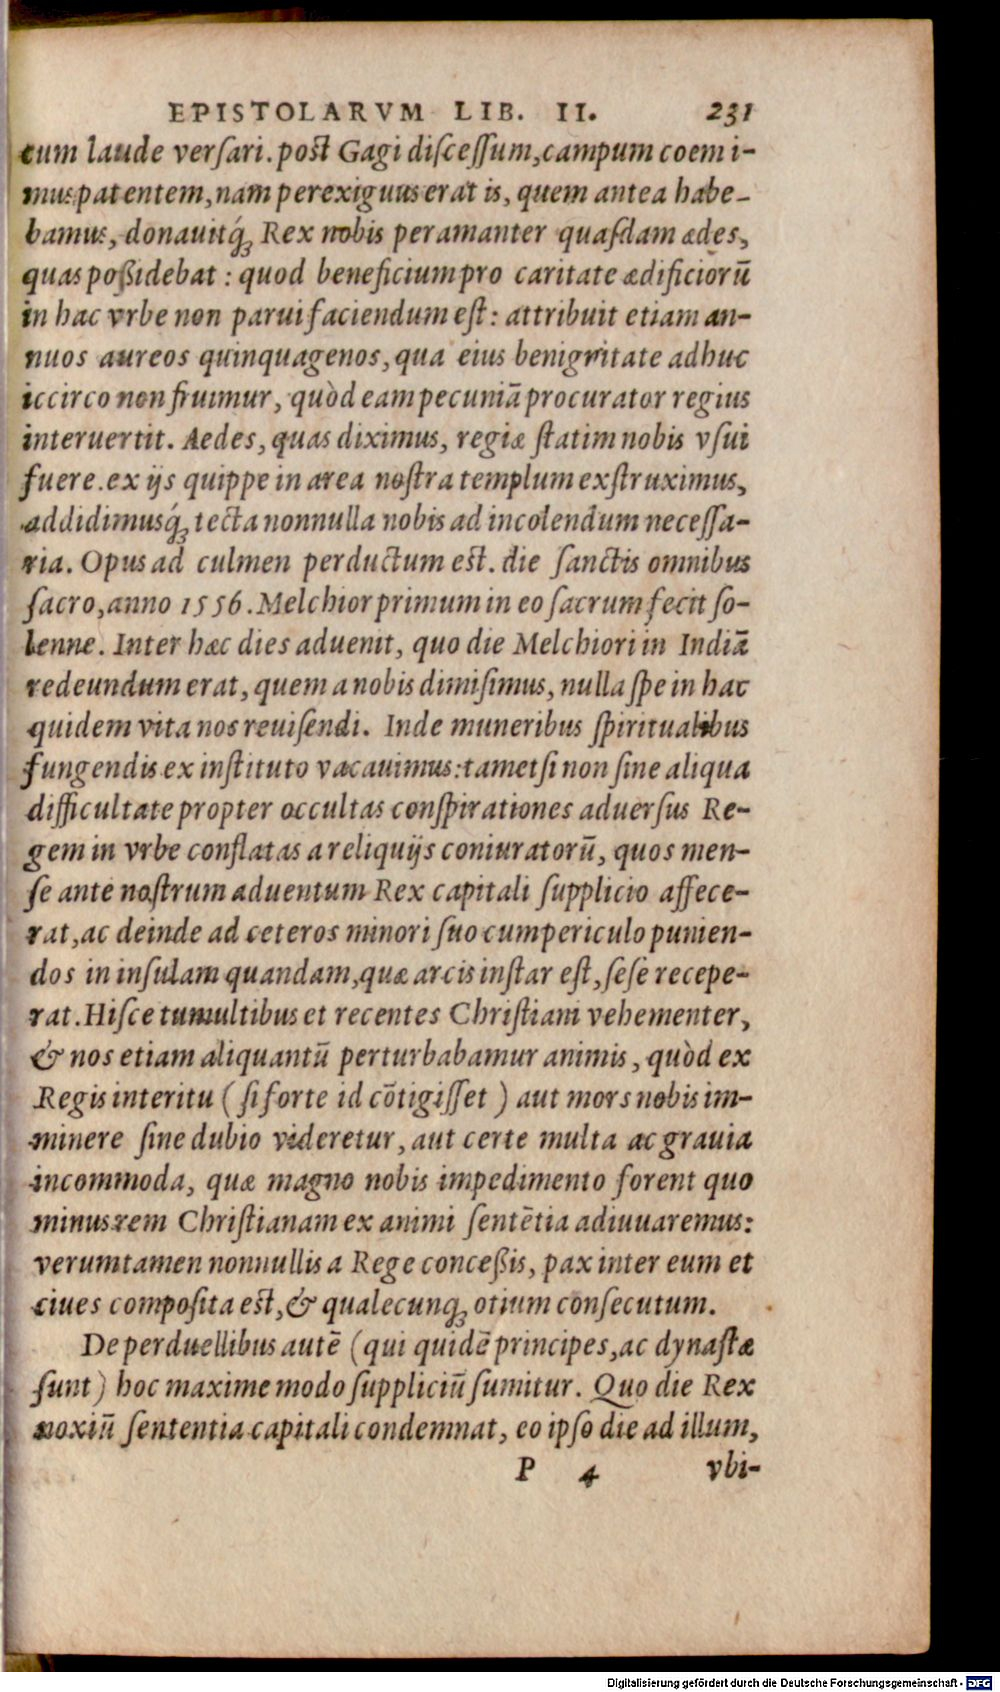 EPISTOLARVM LIB. II. 231
cum laude verſari. post Gagi diſceſſum, campum coemi-
mus patentem, nam perexiguus erat is, quem antea habe-
bamus, donauitq́ꝫ Rex nobis peramanter quaſdam ædes,
quas poßidebat: quod beneficium pro caritate ædificiorũ
in hac vrbe non parui faciendum eſt: attribuit etiam an-
nuos aureos quinquagenos, qua eius benignitate adhuc
iccirco non fruimur, quòd eam pecuniã procurator regius
interuertit. Aedes, quas diximus, regiæ ſtatim nobis vſui
fuere. ex ijs quippe in area noſtra templum exſtruximus,
addidimusq́ꝫ tecta nonnulla nobis ad incolendum neceſſa-
ria. Opus ad culmen perductum eſt. die ſanctis omnibus
ſacro, anno 1556. Melchior primum in eo ſacrum fecit ſo-
lenne. Inter hæc dies aduenit, quo die Melchiori in Indiã
redeundum erat, quem a nobis dimiſimus, nulla ſpe in hac
quidem vita nos reuiſendi. Inde muneribus ſpiritualibus
fungendis ex inſtituto vacauimus: tametſi non ſine aliqua
difficultate propter occultas conſpirationes aduerſus Re-
gem in vrbe conflatas a reliquijs coniuratorũ, quos men-
ſe ante noſtrum aduentum Rex capitali ſupplicio affece-
rat, ac deinde ad ceteros minori ſuo cum periculo punien-
dos in inſulam quandam, quæ arcis inſtar eſt, ſeſe recepe-
rat. Hiſce tumultibus et recentes Chriſtiani vehementer,
& nos etiam aliquantũ perturbabamur animis, quòd ex
Regis interitu ( ſi forte id cõtigiſſet ) aut mors nobis im-
minere ſine dubio videretur, aut certe multa ac grauia
incommoda, quæ magno nobis impedimento forent quo
minus rem Chriſtianam ex animi ſentẽtia adiuuaremus:
verumtamen nonnullis a Rege conceßis, pax inter eum et
ciues compoſita eſt, & qualecunqꝫ otium conſecutum.
De perduellibus autẽ (qui quidẽ principes, ac dynaſtæ
ſunt) hoc maxime modo ſuppliciũ ſumitur. Quo die Rex
noxiũ ſententia capitali condemnat, eo ipſo die ad illum,
P 4 vbi-
Digitalisierung gefördert durch die Deutsche Forschungsgemeinschaft - DFG